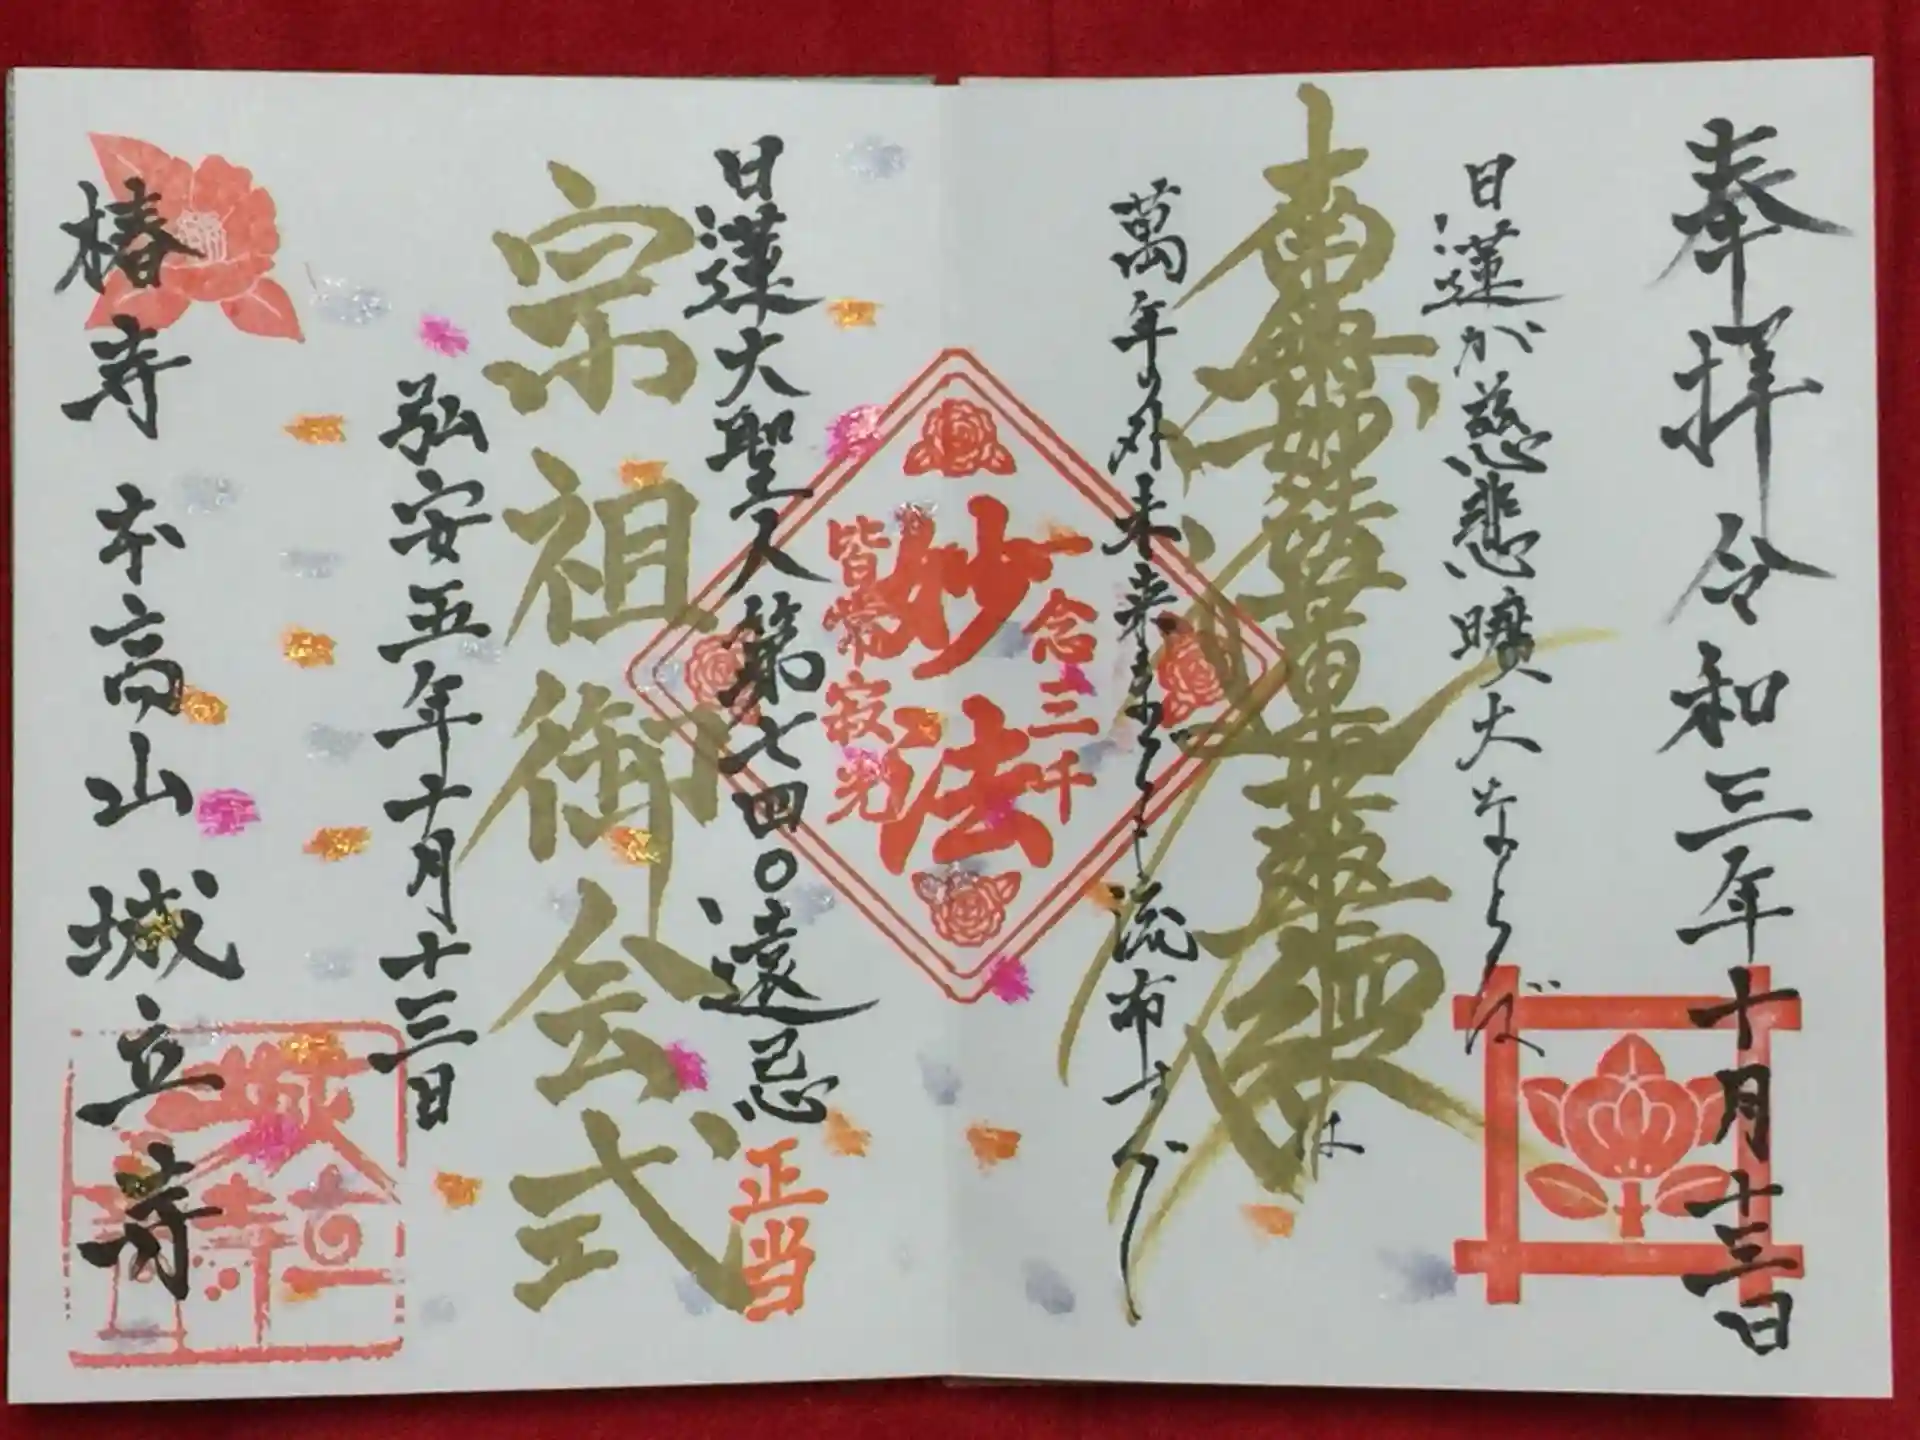 奉拝 令和三年十月十三日
日蓮が慈悲曠大ならば
南無妙法蓮華経は
萬年の外未来までも流布すべし
一念三千
妙法
皆常寂光
日蓮大聖人第七四〇遠忌
正当
宗祖御会式
弘安五年十月十三日
椿寺 本高山城立寺
城立寺